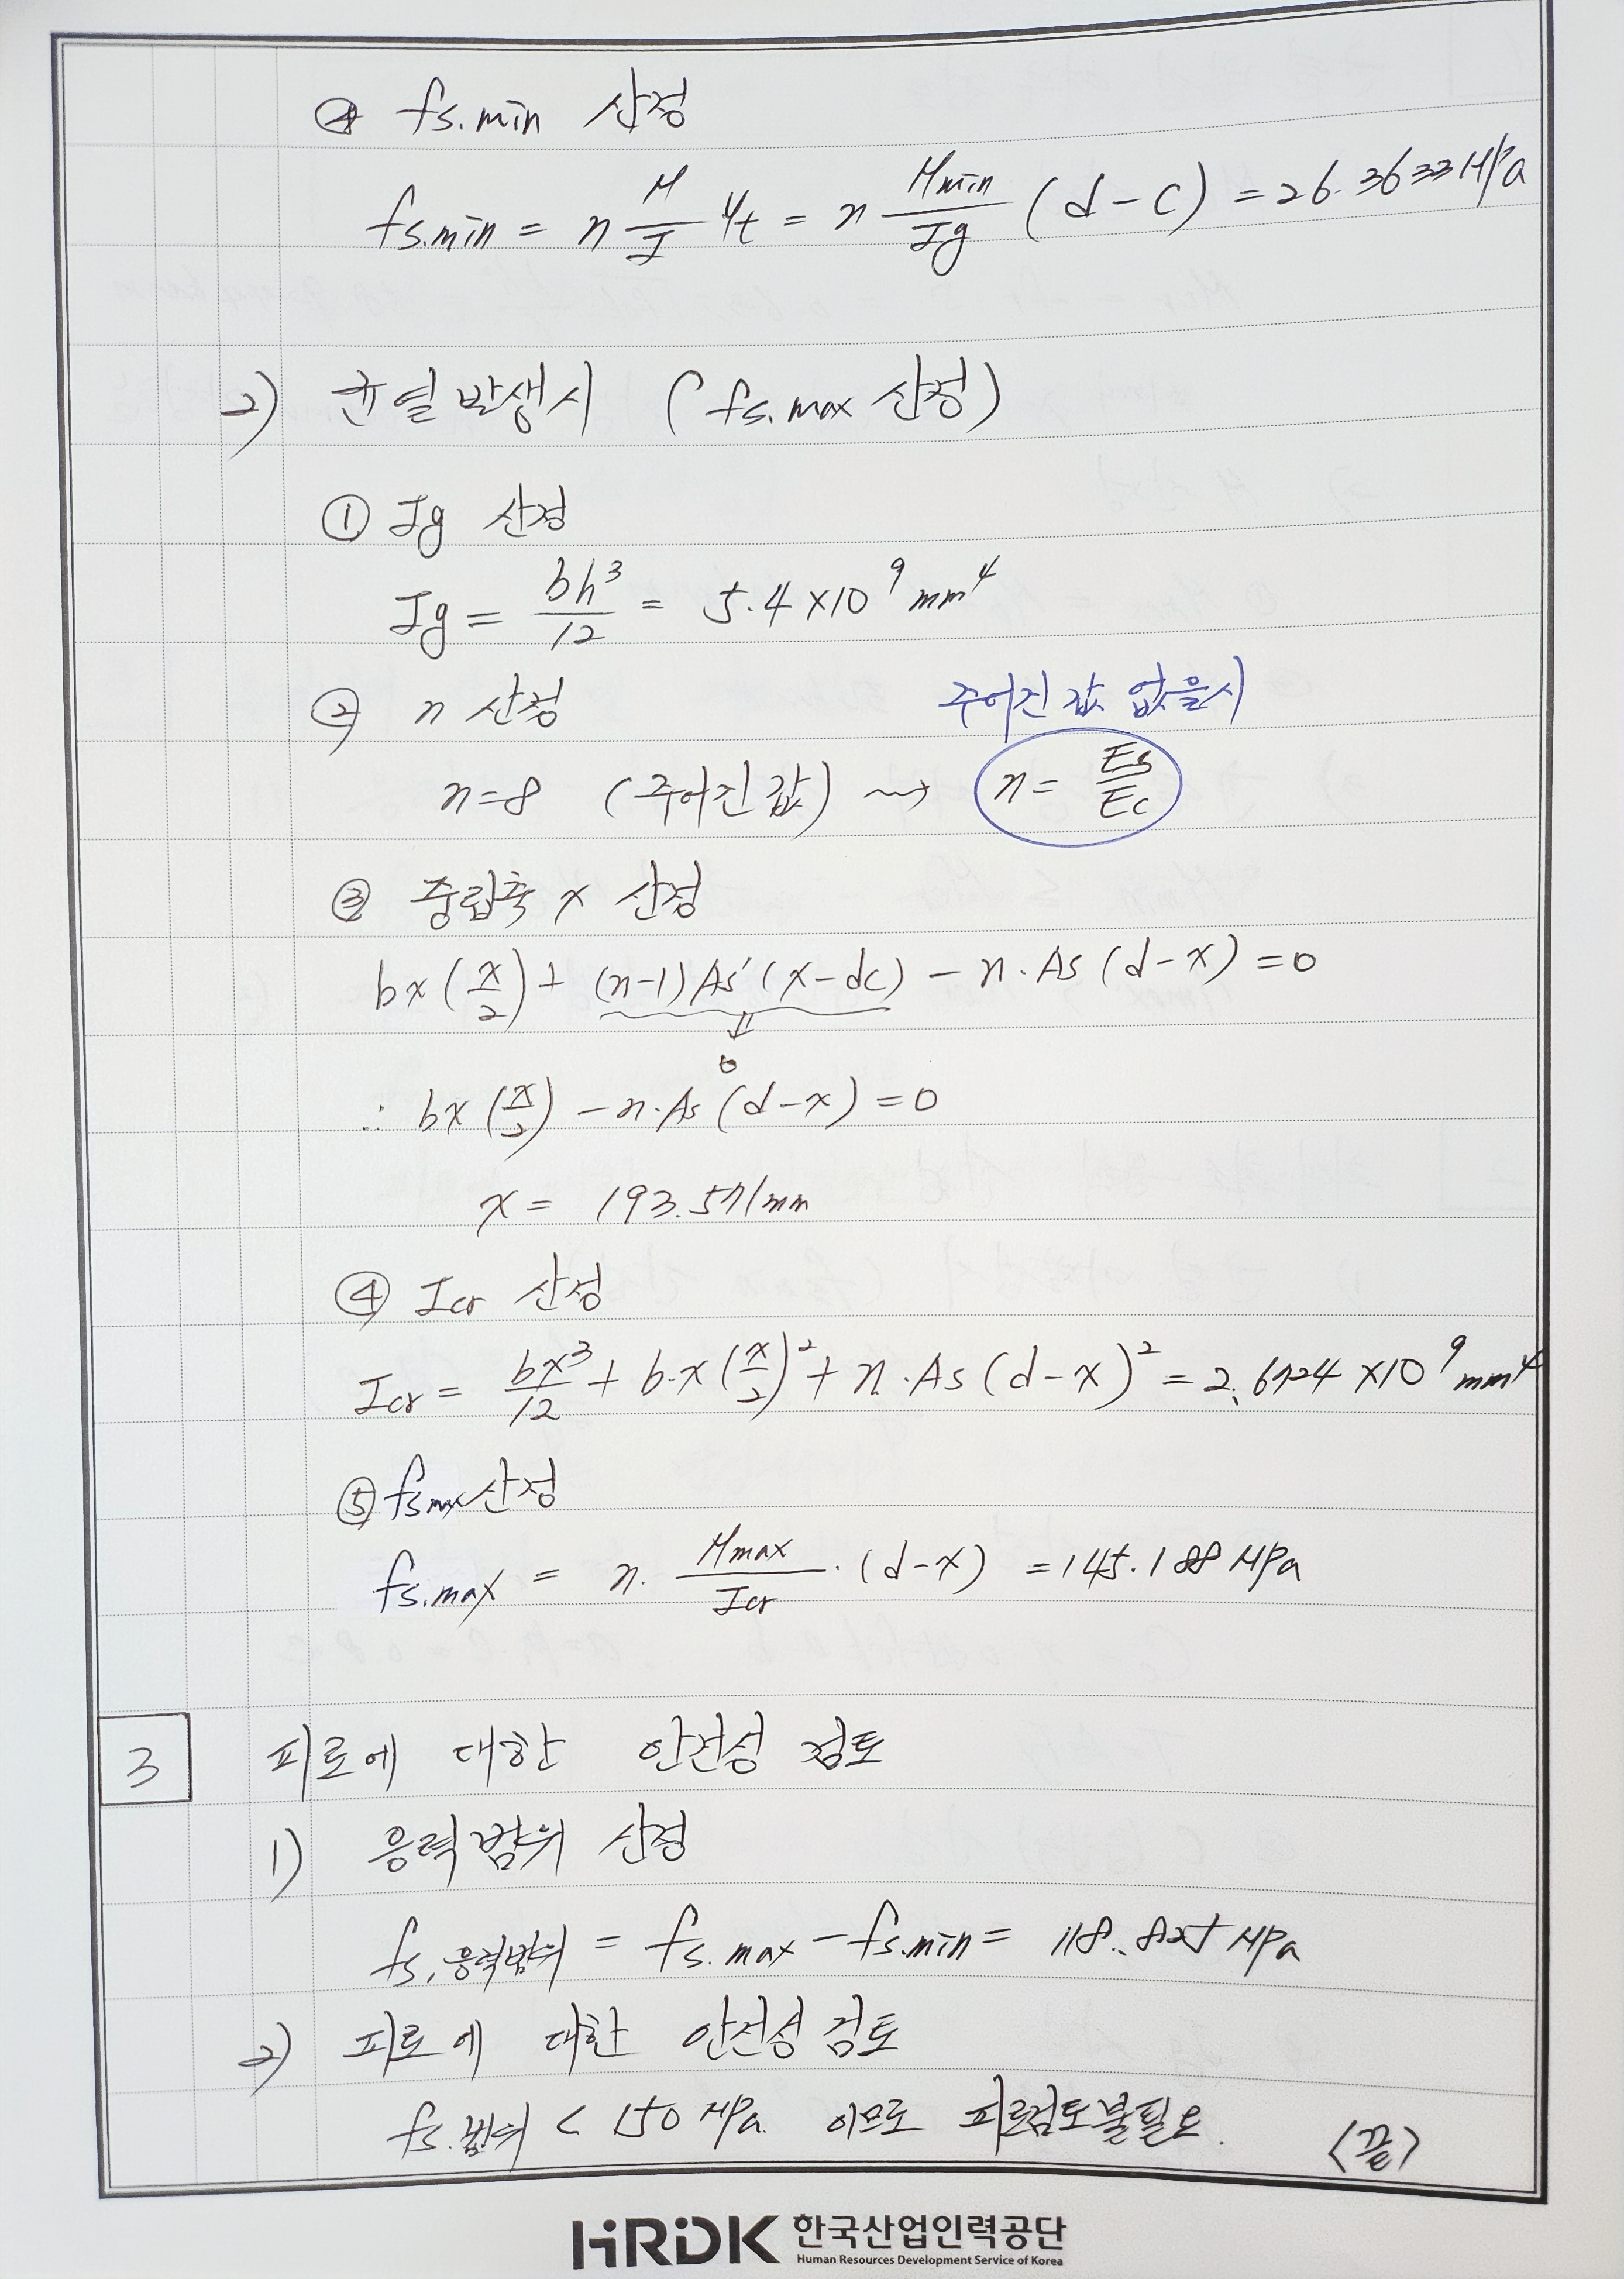 ④ fs.min 산정
fs.min = n M/I yt = n Mmin/Ig (d-c) = 26.3633 MPa
2) 균열발생시 (fs.max 산정)
① Ig 산정
Ig = bh³/12 = 5.4×10⁹ mm⁴
② n 산정
주어진 값 없을시
n=8 (주어진 값) ⇝ n = Es/Ec
③ 중립축 x 산정
bx(x/2) + (n-1)As'(x-dc) - n·As(d-x) = 0
↓
0
∴ bx(x/2) - n·As(d-x) = 0
x = 193.571mm
④ Icr 산정
Icr = bx³/12 + b·x(x/2)² + n·As(d-x)² = 2.6724×10⁹ mm⁴
⑤ fsmax 산정
fs.max = n·Mmax/Icr·(d-x) = 145.188 MPa
3 피로에 대한 안전성 검토
1) 응력범위 산정
fs,응력범위 = fs.max - fs.min = 118.825 MPa
2) 피로에 대한 안전성 검토
fs.범위 < 150 MPa 이므로 피로검토불필요. <끝>
HRDK 한국산업인력공단
Human Resources Development Service of Korea